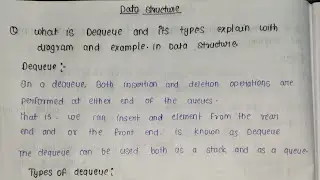 Data Structure
Q what is Dequeue and its types explain with
diagram and example. in Data structure
Dequeue:-
On a dequeue, Both insertion and deletion operations are
performed at either end of the queues.
That is. we can insert and element from the rear
end and or the Front end. is known as Dequeue
The dequeue can be used both as a stack and as a queue.
Types of dequeue: